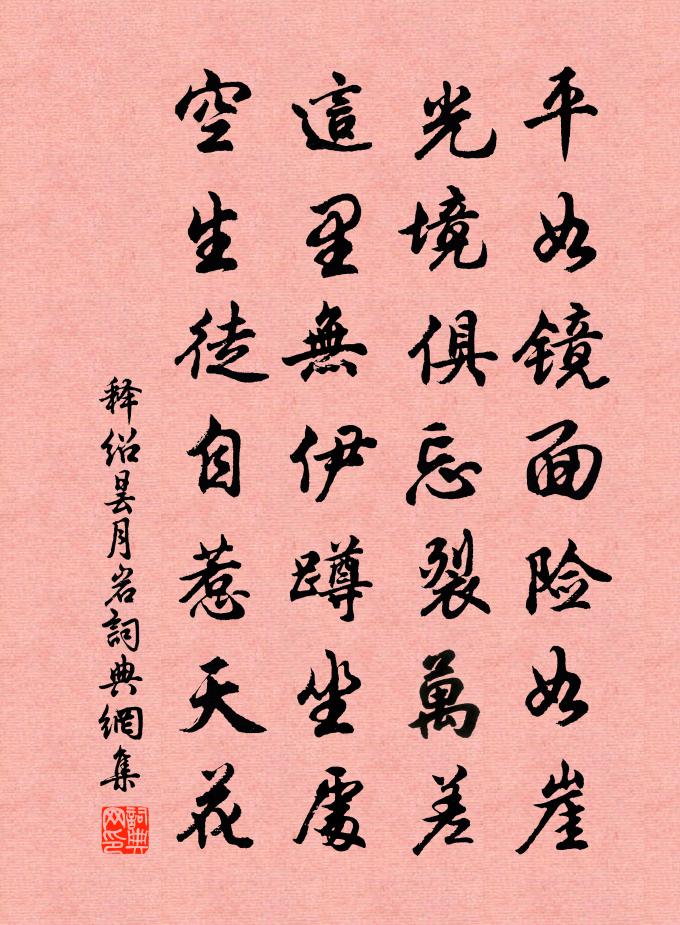 平如镜面险如崖
光境俱忘裂萬差
這里無伊蹲坐處
空生徒自惹天花
释绍昙月岩詞典網集
詞典网印